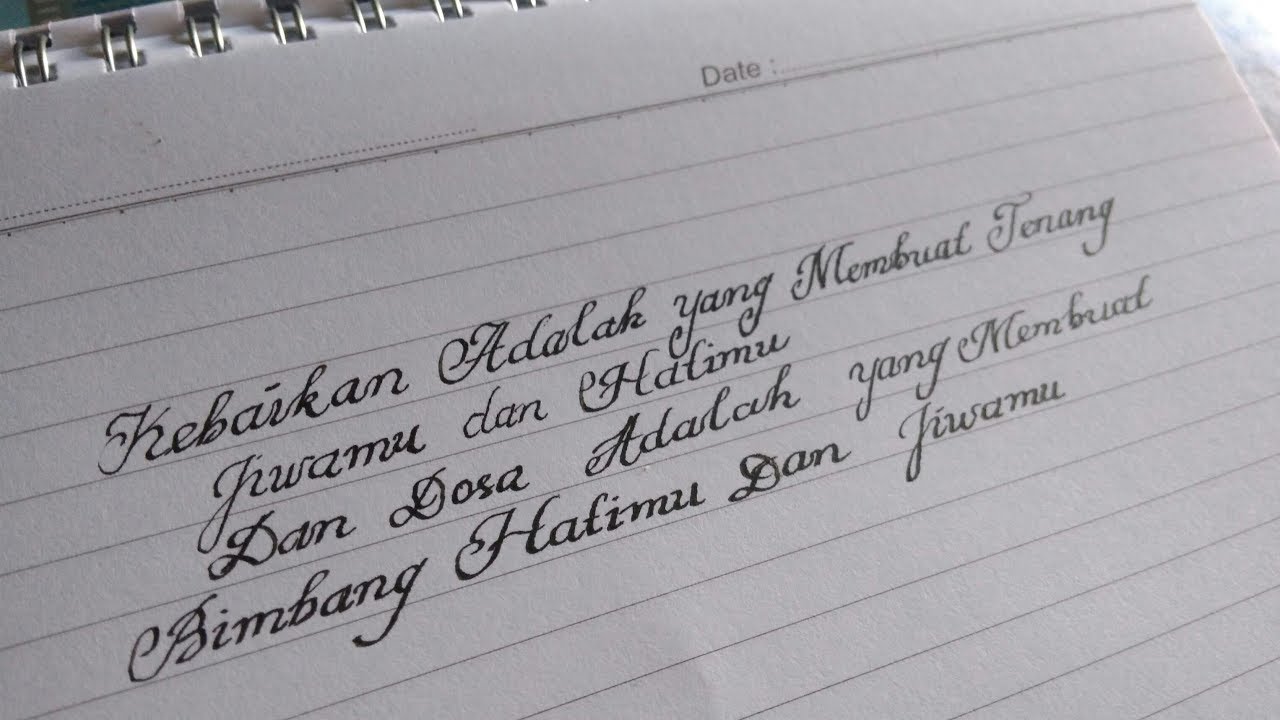 Date :
Kebaikan Adalah yang Membuat Tenang
Jiwamu dan Hatimu
Dan Dosa Adalah yang Membuat
Bimbang Hatimu Dan Jiwamu